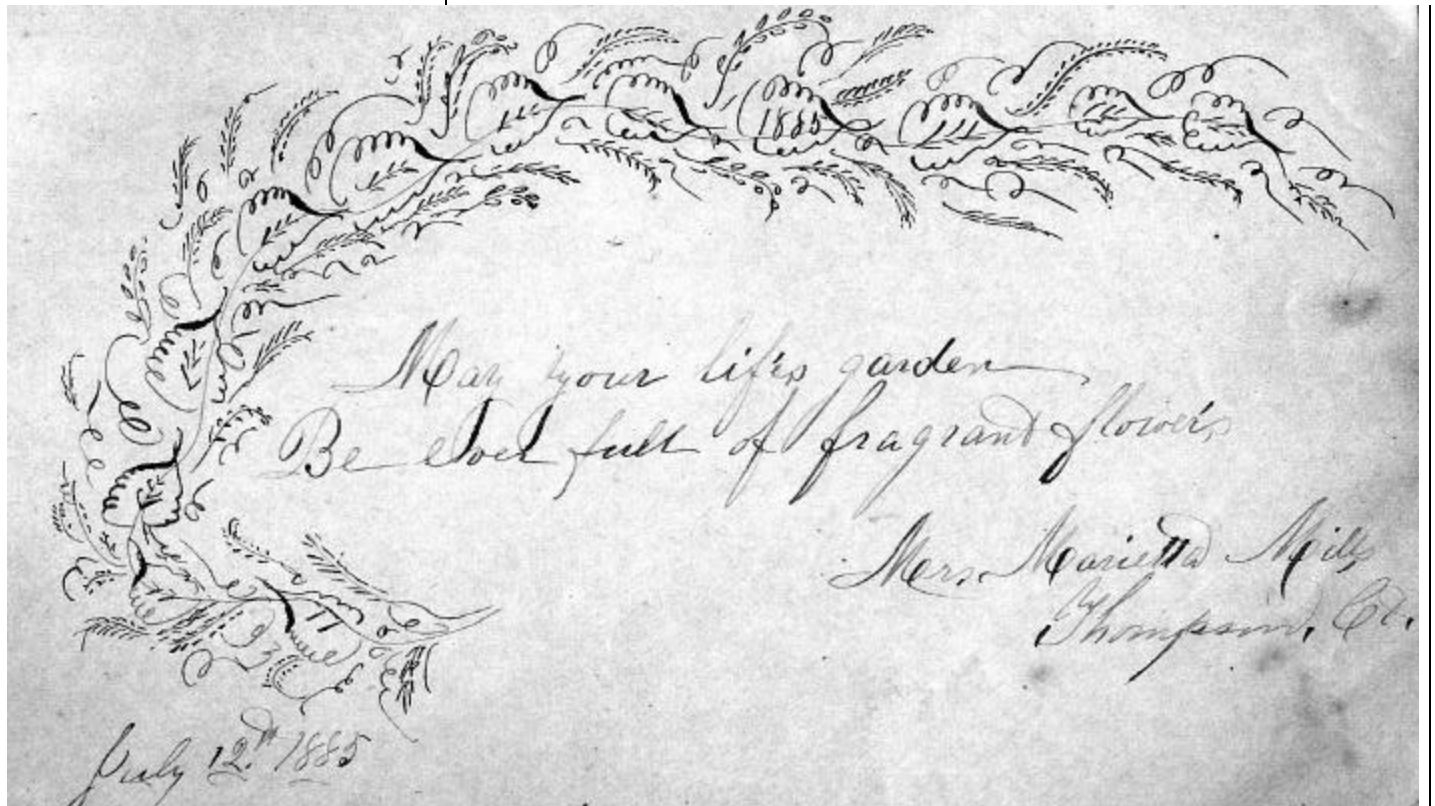 1885
May your life's garden
Be full of fragrant flowers
Mrs. Marietta Mills
Thompson, Ct.
July 12th 1885